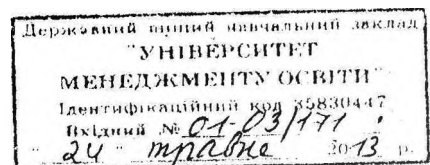 Державний вищий навчальний заклад
"УНІВЕРСИТЕТ
МЕНЕДЖМЕНТУ ОСВІТИ"
Ідентифікаційний код 35830447
Вхідний № 01-03/171
"24" травня 2013 р.